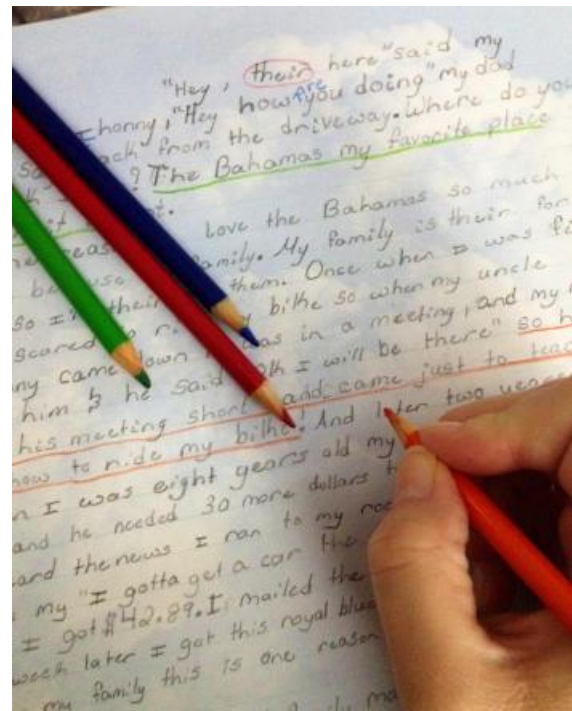 "Hey, their here" said my
honny, "Hey how are you doing" my dad
back from the driveway. Where do you
? The Bahamas my favorite place
it
reas Love the Bahamas so much
because family. My family is their for
so I? their them. Once when I was fi
scared to r bilhe so when my uncle
ny came down as in a meeting, and my
him & he said I will be there" so h
his meeting short and came just to teac
how to ride my bilhe! And later two years
n I was eight years old my
and he needed 30 more dollars t
ard the news I ran to my roo
my "I gotta get a car the
I got $42.89. I mailed the
week later I got this royal blue
my family this is one reason